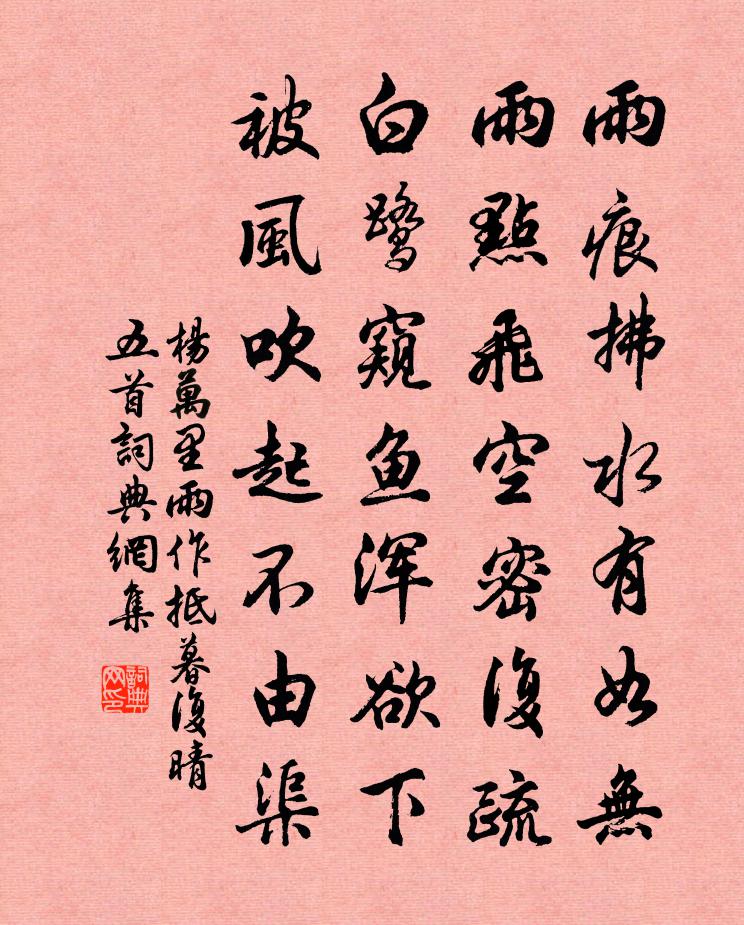 雨痕拂水有如無
雨點飛空密復疏
白鷺窺魚浑欲下
被風吹起不由渠
楊萬里雨作抵暮復晴
五首詞典網集
詞典网印